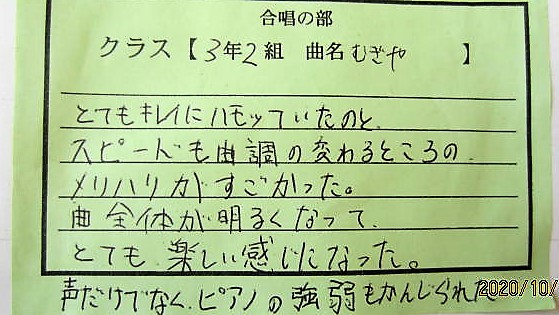 合唱の部
クラス【3年2組 曲名 むぎや 】
とてもキレイにハモッていたのと、
スピードも曲調の変わるところの、
メリハリがすごかった。
曲全体が明るくなって、
とても楽しい感じになった。
声だけでなく、ピアノの強弱もかんじられた。
2020/10/